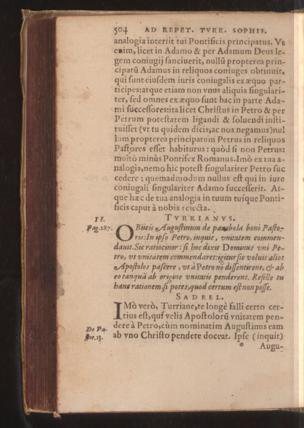 504 AD REPET. TVRR. SOPHIS.
analogia interiit tui Pontificis principatus. Vt
enim, licet in Adamo & per Adamum Deus le-
gem coniugij sanciuerit, nullũ propterea prin-
cipatũ Adamus in reliquos coniuges obtinuit,
qui sunt eiusdem iuris coniugalis ex æquo par-
ticipes: atque etiam non vnus aliquis singulari-
ter, sed omnes ex æquo sunt hac in parte Ada-
mi successores: ita licet Christus in Petro & per
Petrum potestatem ligandi & soluendi insti-
tuisset (vt tu quidem dicis, ac nos negamus) nul
lam propterea principatum Petrus in reliquos
Pastores esset habiturus: quòd si non Petrus:
multò minùs Pontifex Romanus. Imò ex tua a-
nalogia, nemo hic potest singulariter Petro suc
cedere: quemadmodum nullus est qui in iure
coniugali singulariter Adamo successerit. At-
que hæc de tua analogia in tuum tuique Ponti-
ficis caput à nobis reiecta.
TVRRIANVS.
Pag. 287.
OBiicis Augustinum de parabola boni Pasto-
ris: In ipso Petro, inquit, vnitatem commen-
dauit. Sic ratiocinor: si hoc dixit Dominus vni Pe-
tro, vt vnitatem commendaret: igitur sic voluit alios
Apostolos pascere, vt à Petro nõ dissentirent, & ab
eo tanquã ab origine vnitatis penderent. Refelle tu
hanc rationem si potes, quod certum est non posse.
SADEEL.
De Pa-
stor. 13.
IMò verò, Turriane, te longè falli certo cer-
tius est, qui velis Apostolorũ vnitatem pen-
dere à Petro, cùm nominatim Augustinus eam
ab vno Christo pendere doceat. Ipse (inquit)
Augu-